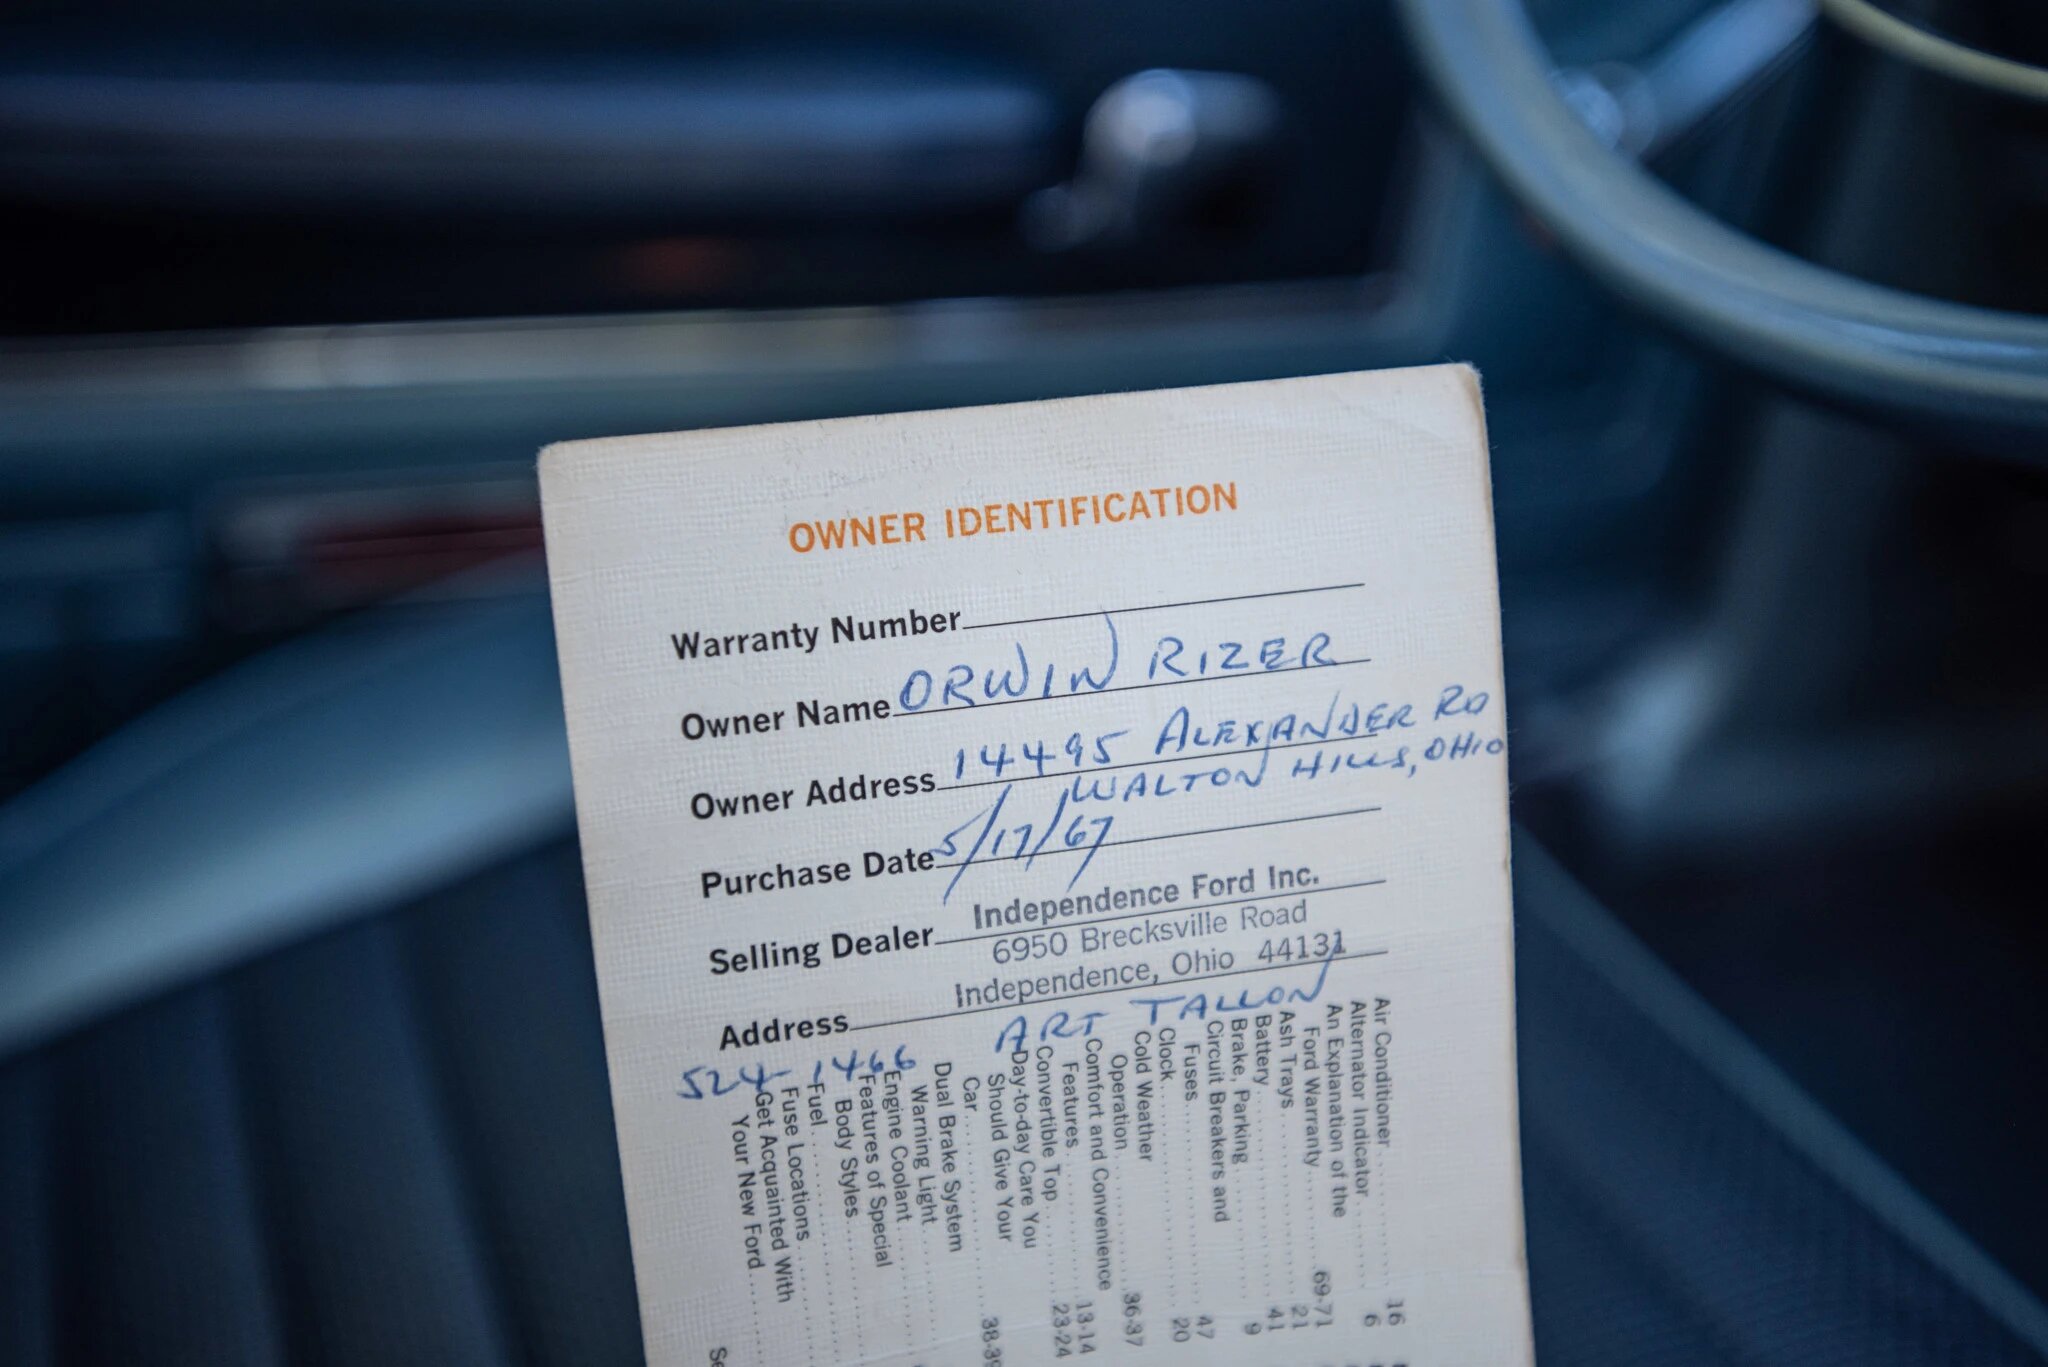 OWNER IDENTIFICATION
Warranty Number
Owner Name ORWIN RIZER
Owner Address 14495 ALEXANDER RD
WALTON HILLS, OHIO
Purchase Date 5/17/67
Selling Dealer Independence Ford Inc.
6950 Brecksville Road
Address Independence, Ohio 44131
ART TALLON
524-1466
Air Conditioner 16
Alternator Indicator 6
An Explanation of the
Ford Warranty 69-71
Ash Trays 21
Battery 41
Brake, Parking 9
Circuit Breakers and
Fuses 47
Clock 20
Cold Weather
Operation 36-37
Comfort and Convenience
Features 13-14
Convertible Top 23-24
Day-to-day Care You
Should Give Your
Car 38-39
Dual Brake System
Warning Light
Engine Coolant
Features of Special
Body Styles
Fuel
Fuse Locations
Get Acquainted With
Your New Ford